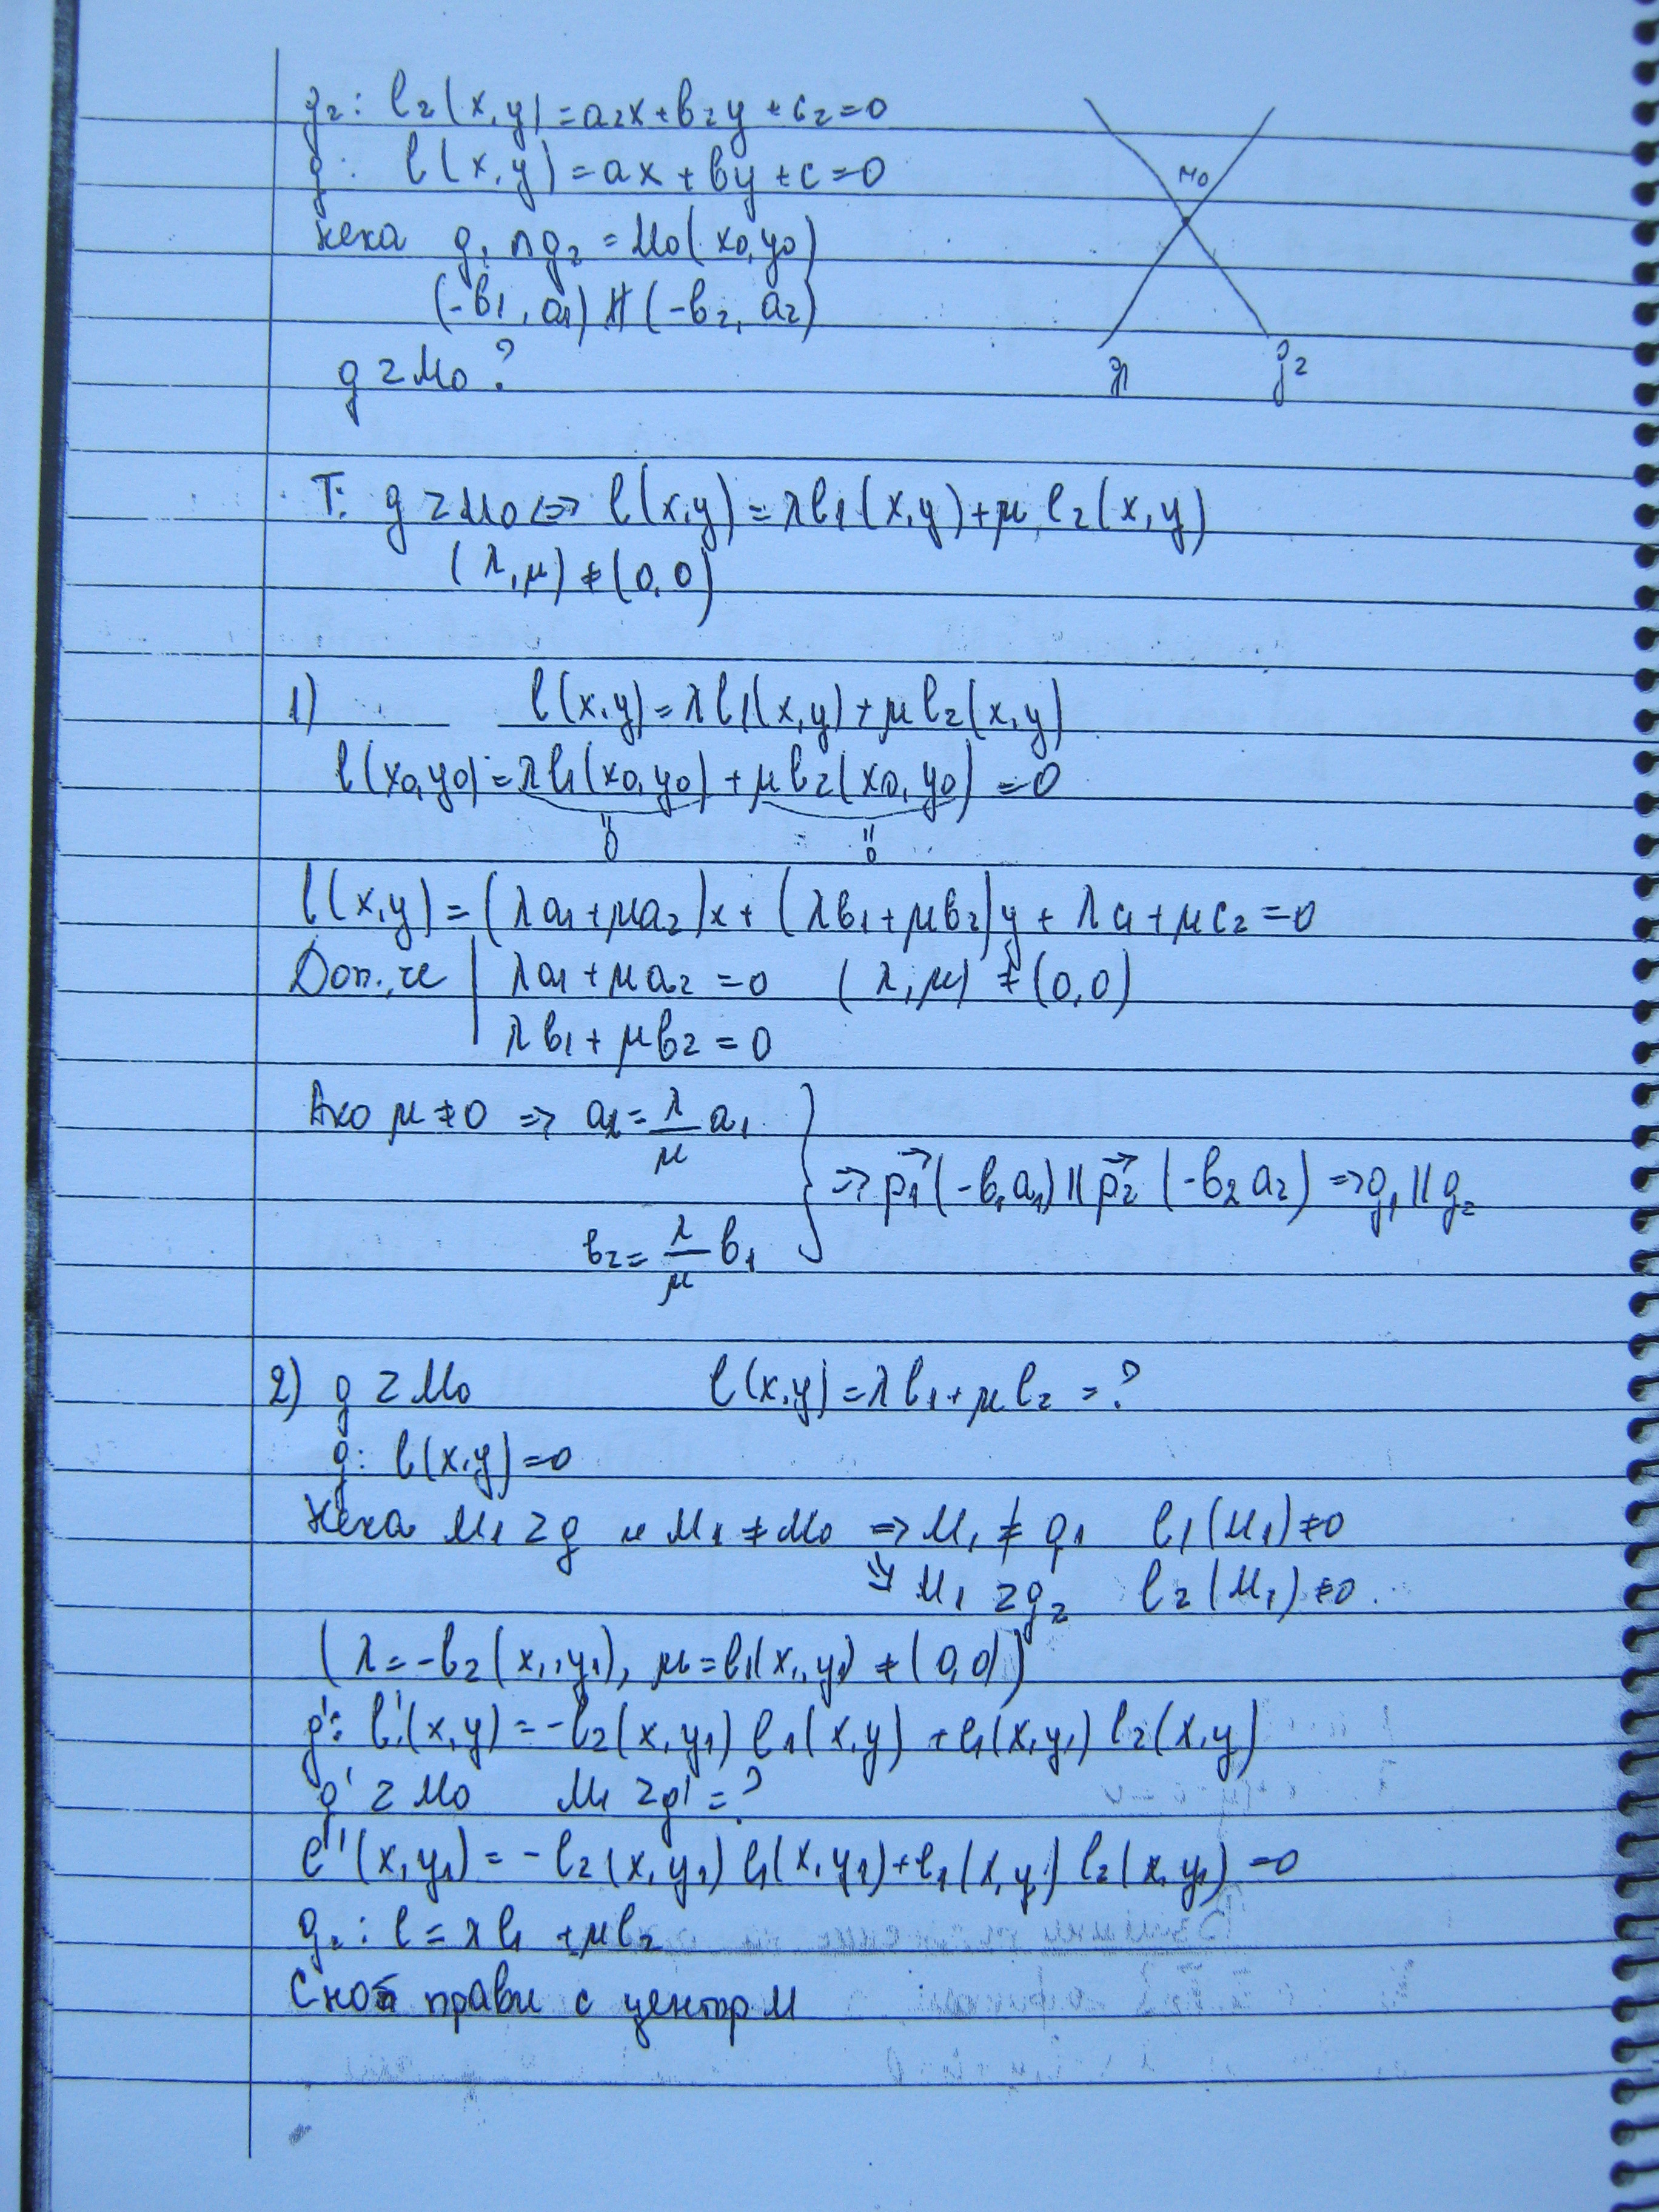 g₂: l₂(x,y)=a₂x+b₂y+c₂=0
g: l(x,y)=ax+by+c=0
M₀
Нека g₁∩g₂=M₀(x₀,y₀)
(-b₁,a₁)∦(-b₂,a₂)
g₁ g₂
g z M₀?
T: g z M₀ <=> l(x,y)=λl₁(x,y)+μl₂(x,y)
(λ,μ)≠(0,0)
1) l(x,y)=λl₁(x,y)+μl₂(x,y)
l(x₀,y₀)=λl₁(x₀,y₀)+μl₂(x₀,y₀)=0
" 0 " 0
l(x,y)=(λa₁+μa₂)x+(λb₁+μb₂)y+λc₁+μc₂=0
Доп.,че | λa₁+μa₂=0 (λ,μ)≠(0,0)
λb₁+μb₂=0
Ако μ≠0 => a₂=λ/μ a₁
} => p₁→(-b₁a₁)||p₂→(-b₂a₂)=>g₁||g₂
b₂=λ/μ b₁
2) g z M₀ l(x,y)=λl₁+μl₂=?
g: l(x,y)=0
Нека M₁ z g и M₁≠M₀ => M₁ ≠ g₁ l₁(M₁)≠0
=> M₁ z g₂ l₂(M₁)≠0.
(λ=-l₂(x₁,y₁), μ=l₁(x₁,y₁)≠(0,0))
g': l'(x,y)=-l₂(x,y₁)l₁(x,y)+l₁(x,y₁)l₂(x,y)
g' z M₀ M₁ z g'=?
l''(x,y₁)=-l₂(x,y₁)l₁(x,y₁)+l₁(x,y₁)l₂(x,y₁)=0
g₂: l=λl₁+μl₂
Сноп прави с център M